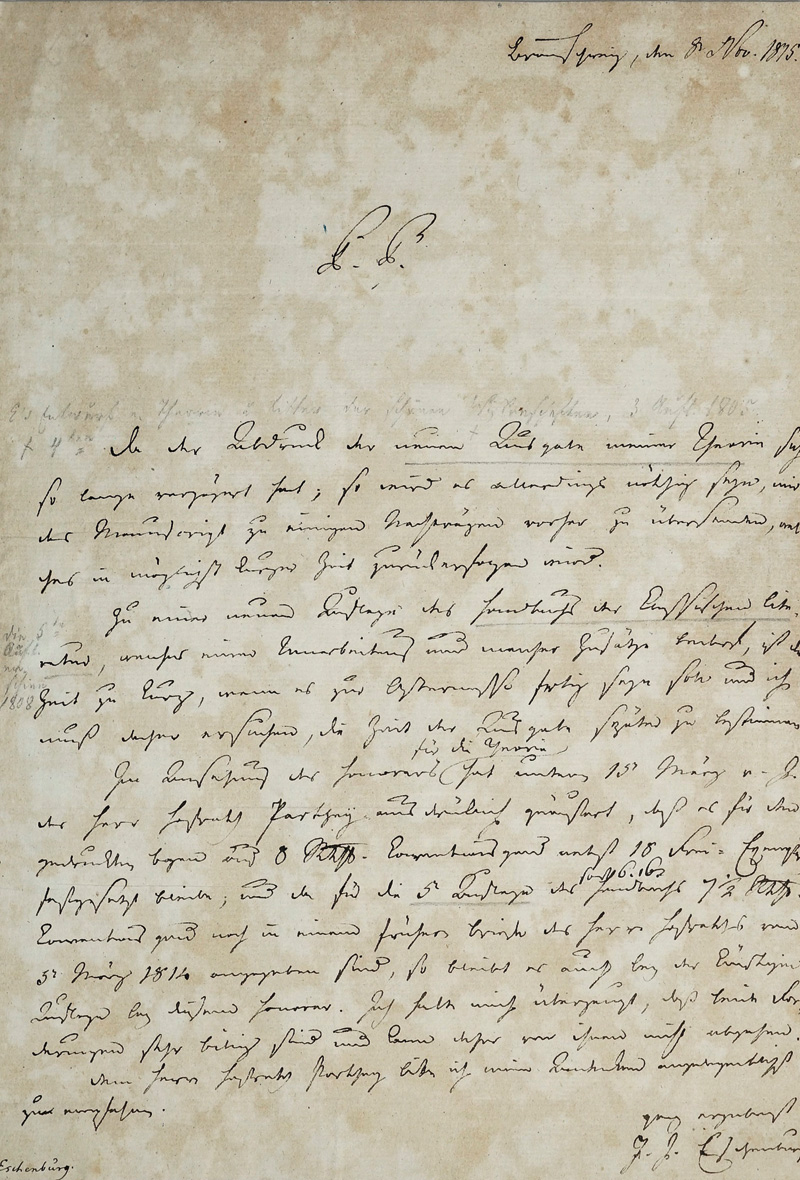 Braunschweig, den 8t Nov. 1815.
P. P.
Entwurf e. Theorie u. Litter. der schönen Wissenschaften, 3 Aufl. 1805
Da der Abdruck der neuen Ausgabe meiner Theorie sich
so lange verzögert hat; so wird es allerdings nöthig seyn, mir
das Manuscript zu einigen Nachträgen vorher zu übersenden, wel-
ches in möglichst kurzer Zeit zurückerfolgen wird.
Zu einer neuen Auflage des Handbuchs der klassischen Lite-
ratur, welcher einer Umarbeitung und mancher Zusätze bedarf, ist die
Zeit zu kurz, wenn es zur Ostermesse fertig seyn soll und ich
muß daher ersuchen, die Zeit der Ausgabe später zu bestimmen
für die Theorie
In Ansehung des Honorars hat unterm 15 März v. J.
der Herr Hofrath Parthey ausdrücklich geäussert, daß es für den
gedruckten Bogen auf 8 Rthlr. Conventionsgeld nebst 18 Frei-Exempl
festgesetzt bleibe; und da für die 5t Auflage des Handbuchs 7 1/2 Rthlr.
Conventionsgeld noch in einem frühern Briefe des Herrn Hofraths vom
5t März 1814 angegeben sind, so bleibt es auch bey der künftigen
Auflage bey diesem Honorar. Ich halte mich überzeugt, daß beide For-
derungen sehr billig sind und kann daher von ihnen nicht abgehen.
Dem Herrn Hofrath Parthey bitte ich mein Andenken angelegentlichst
zu empfehlen.
ganz ergebenst
J. J. Eschenburg
Eschenburg.
die 5te
Aufl.
erschien
1808